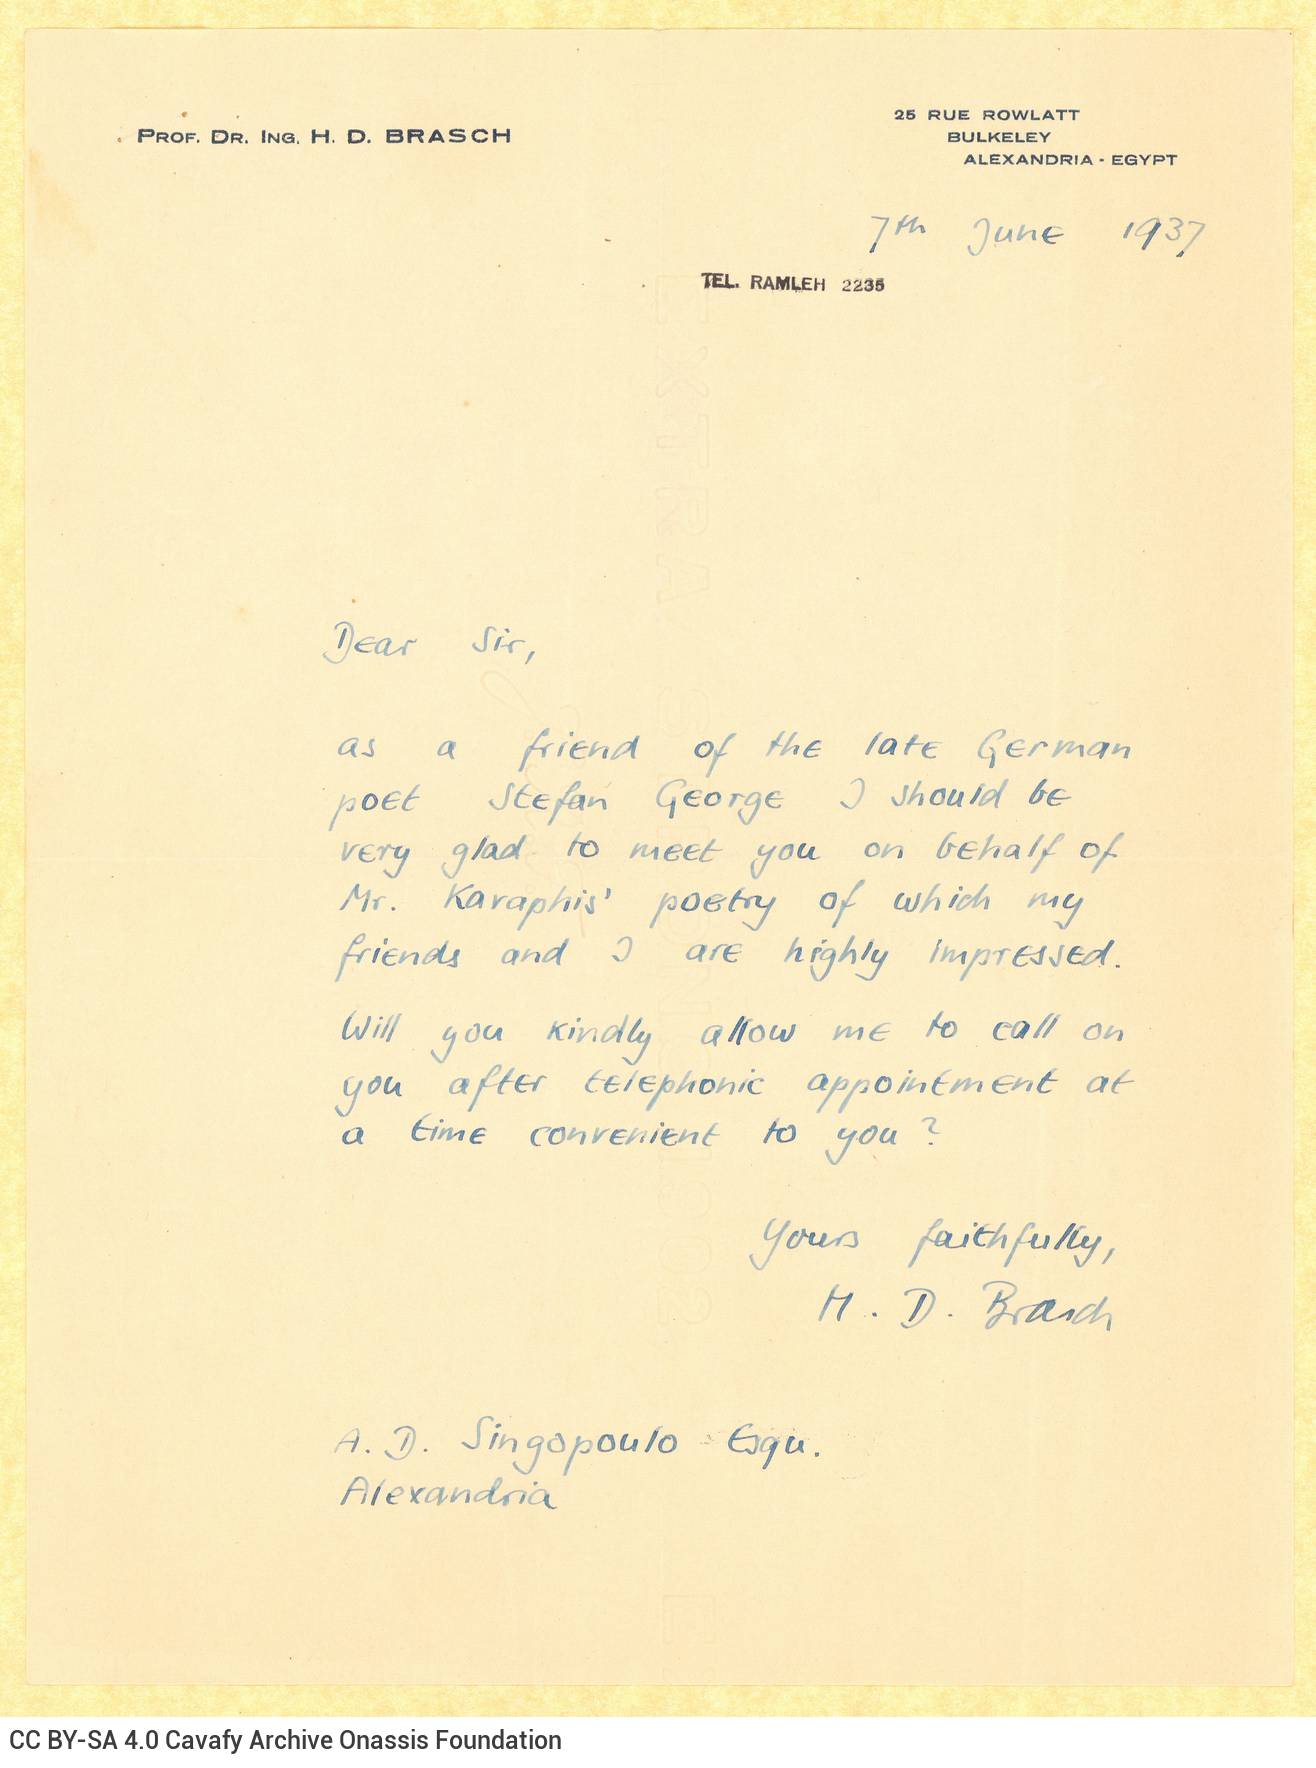 PROF. DR. ING. H. D. BRASCH
25 RUE ROWLATT
BULKELEY
ALEXANDRIA - EGYPT
7th June 1937
TEL. RAMLEH 2235
Dear Sir,
as a friend of the late German
poet Stefan George I should be
very glad to meet you on behalf of
Mr. Kavaphis' poetry of which my
friends and I are highly impressed.
Will you kindly allow me to call on
you after telephonic appointment at
a time convenient to you?
Yours faithfully,
H. D. Brasch
A. D. Singopoulo Esqu.
Alexandria
CC BY-SA 4.0 Cavafy Archive Onassis Foundation